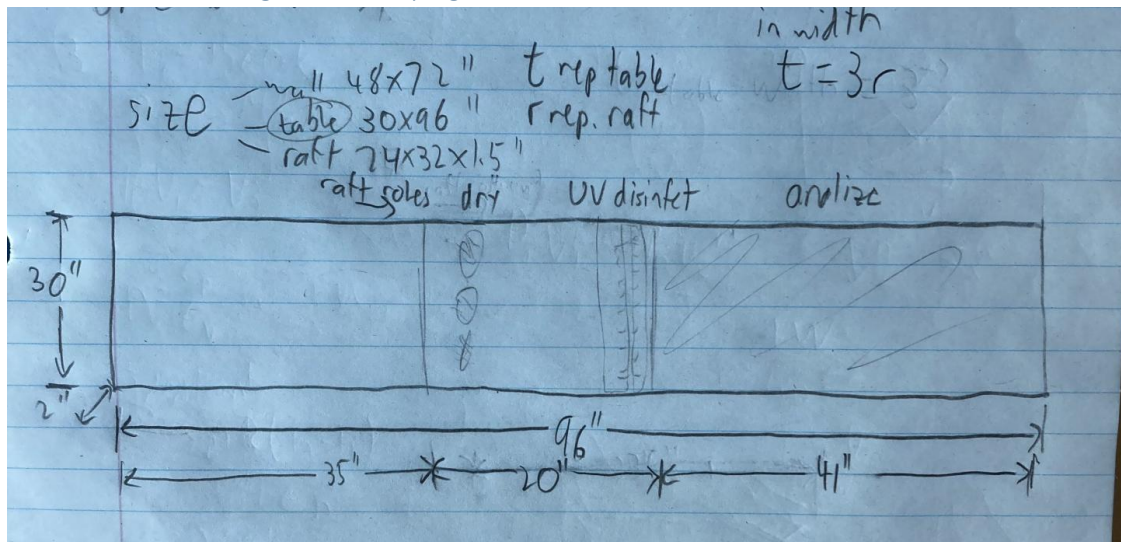 in width
size - wall 48x72" t rep table t = 3r
- table 30x96" r rep. raft
- raft 24x32x1.5"
raft goes dry UV disinfet analize
30"
2"
96"
35" 20" 41"